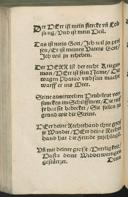 Der HErr ist mein stercke vñ Lob
sang / Vnd ist mein Heil.
Das ist mein Gott / Ich wil jn prei
sen / Er ist meines Vaters Gott /
Ich wil jn erheben.
Der HERR ist der recht Kriegs
man / HErr ist sein Name / Die
wagen Pharao vnd sein macht
warff er ins Meer.
Seine auserwelten
suncken im Schilffmeer / Die
tieffe hat sie bedecket / Sie fielen zu
grund wie die Steine.
HErr deine Rechte hand thut gros
se Wunder / HErr deine Rechte
hand hat die Feinde zuschlagen.
Vñ mit deiner grosse Herrligkeit /
Hastu deine Widderwertigen
gestürtzet.